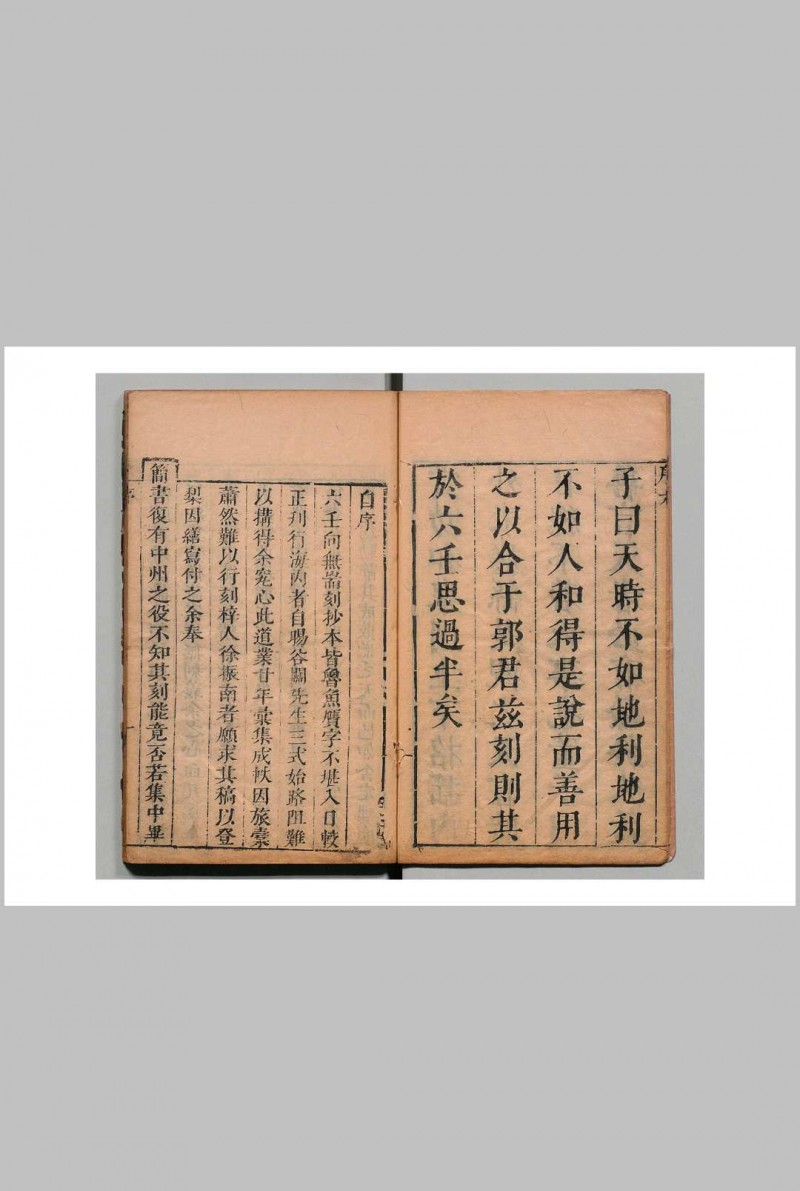 子曰天時不如地利地利
不如人和得是說而善用
之以合于郭君茲刻則其
於六壬思過半矣
自序
六壬向無耑刻抄本皆魯魚贋字不堪入目較
正刋行海內者自暘谷關先生三式始路阻難
以搆得余寃心此道業廿年彙集成帙因旅橐
蕭然難以行刻梓人徐振南者願求其稿以登
棃因繕寫付之余奉
簡書復有中州之役不知其刻能竟否若集中畢